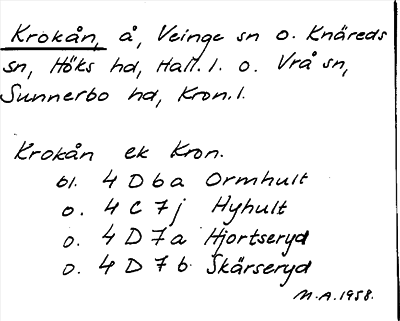 Krokån, å, Veinge sn o. Knäreds
sn, Höks hd, Hall. l. o. Vrå sn,
Sunnerbo hd, Kron. l.
Krokån ek Kron.
bl. 4 D 6 a Ormhult
o. 4 C 7 j Hyhult
o. 4 D 7 a Hjortseryd
o. 4 D 7 b Skärseryd
M.A. 1958.